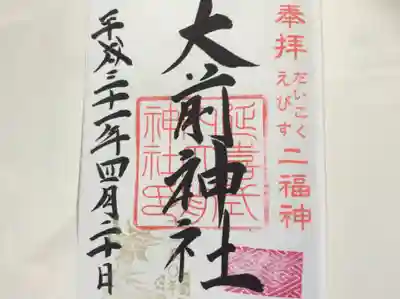 奉拝
だいこく
えびす
二福神
大前神社
延喜式
神社
平成三十一年四月二十日